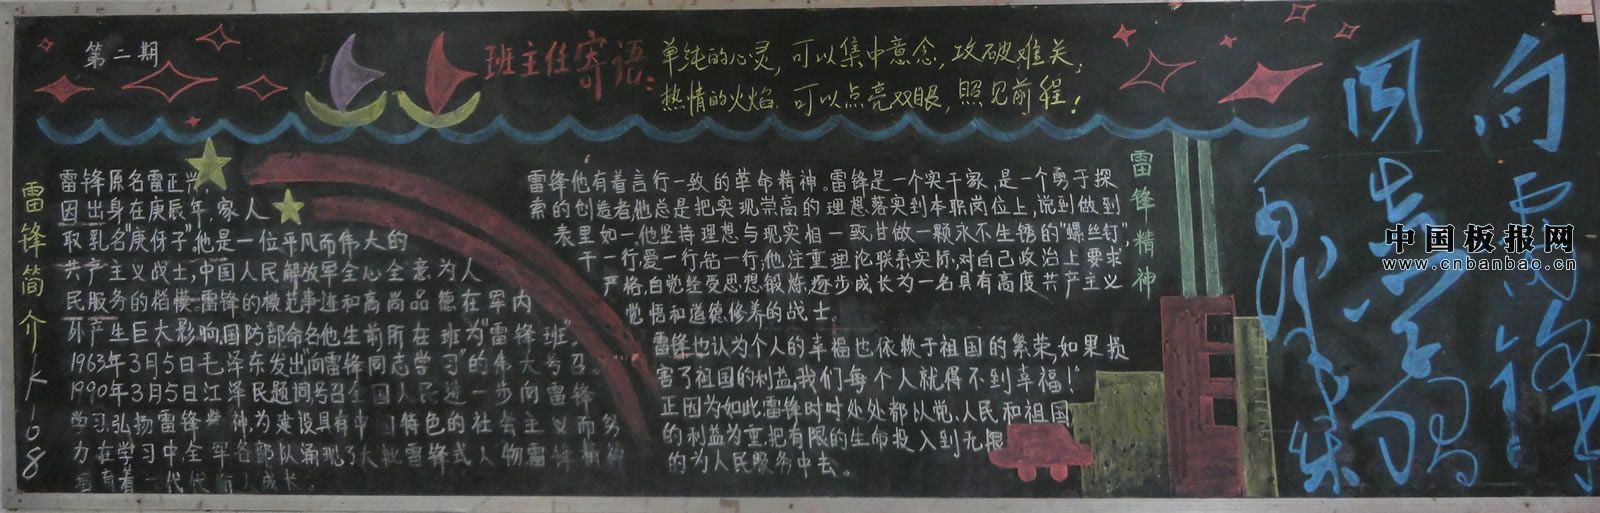 第二期
班主任寄语:
单纯的心灵,可以集中意念,攻破难关;
热情的火焰,可以点亮双眼,照见前程!
雷锋简介
K-108
雷锋原名雷正兴,
因出身在庚辰年,家人
取乳名"庚伢子",他是一位平凡而伟大的
共产主义战士,中国人民解放军全心全意为人
民服务的楷模.雷锋的模范事迹和高尚品德在军内
外产生巨大影响,国防部命名他生前所在班为"雷锋班"。
1963年3月5日毛泽东发出"向雷锋同志学习"的伟大号召。
1990年3月5日江泽民题词号召全国人民进一步向雷锋
学习,弘扬雷锋精神,为建设具有中国特色的社会主义而努
力.在学习中,全军各部队涌现了大批雷锋式人物,雷锋精神
着一代代
人成长。
雷锋他有着言行一致的革命精神。雷锋是一个实干家,是一个勇于探
索的创造者,他总是把实现崇高的理想落实到本职岗位上,说到做到
表里如一。他坚持理想与现实相一致,甘做一颗永不生锈的"螺丝钉",
干一行,爱一行,钻一行;他注重理论联系实际,对自己政治上要求
严格,自觉经受思想锻炼,逐步成长为一名具有高度共产主义
觉悟和道德修养的战士。
雷锋也认为个人的幸福也依赖于祖国的繁荣,如果损
害了祖国的利益,我们每个人就得不到幸福!"
正因为如此,雷锋时时处处都以党、人民和祖国
的利益为重,把有限的生命投入到无限
的为人民服务中去。
雷锋精神
向雷锋
同志学习
中国板报网
www.cnbanbao.cn